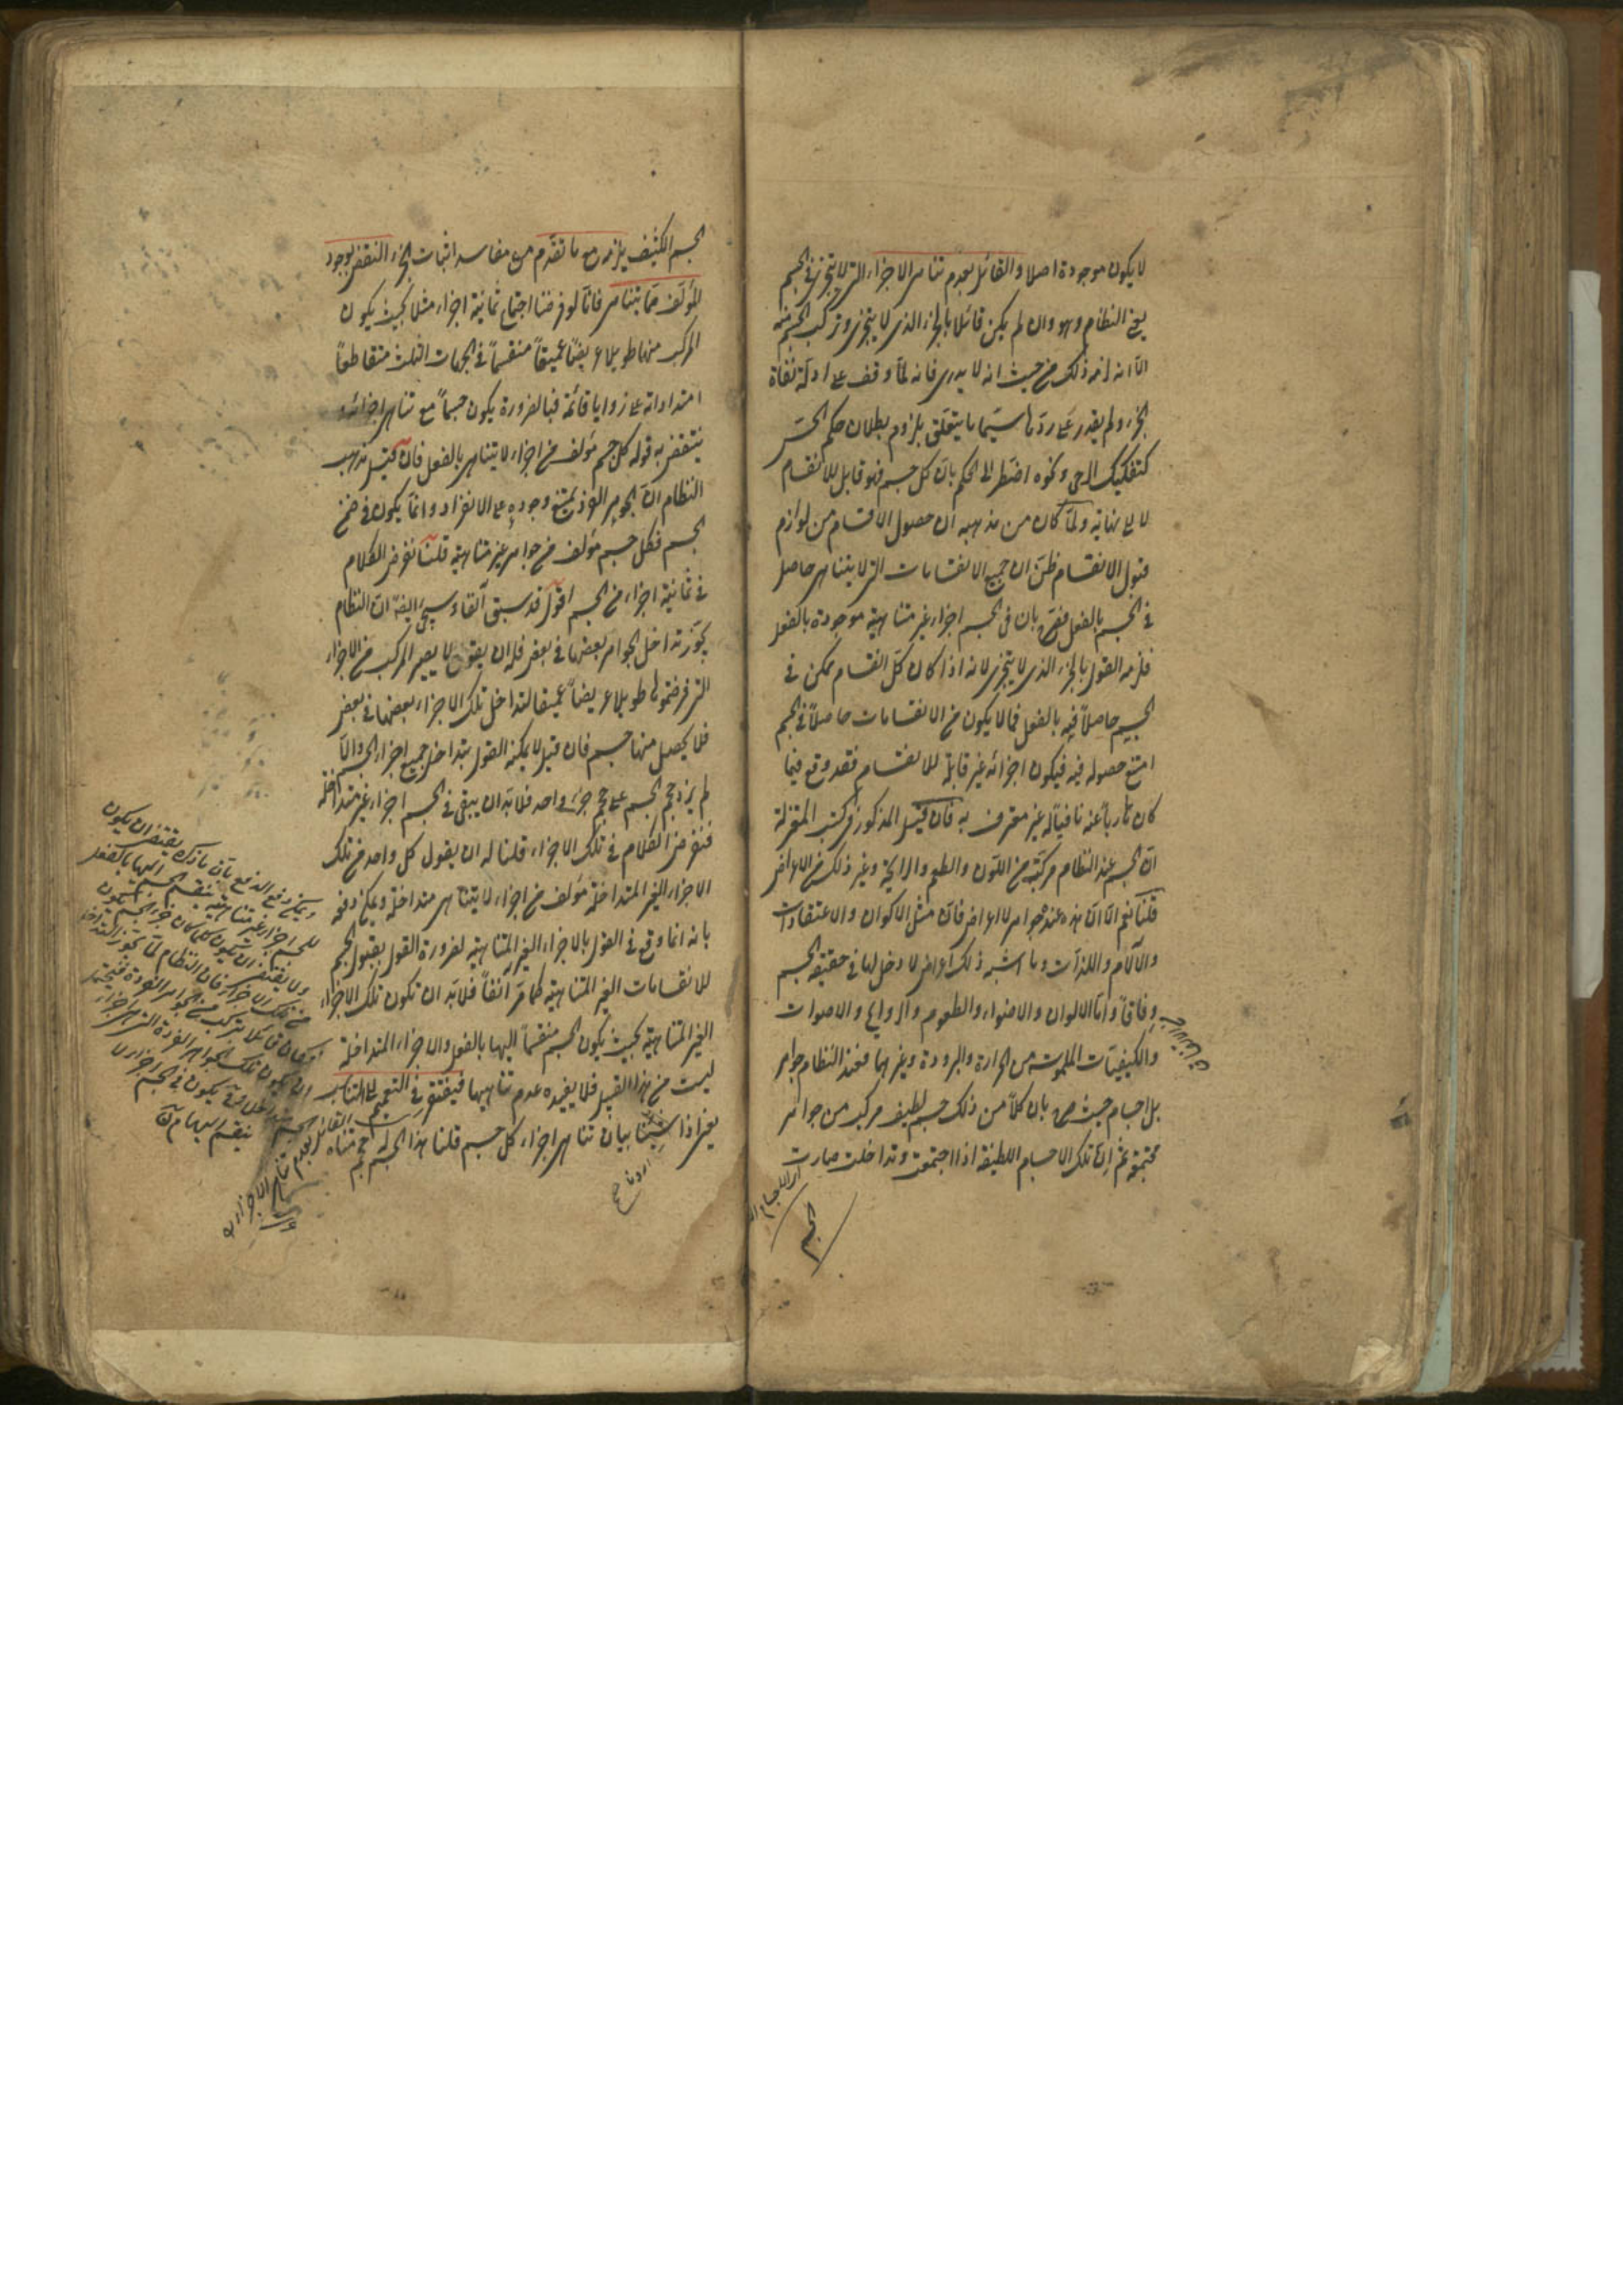 لا يكون موجودة اصلا والقائل بعدم تناهى الاجزاء التى لا يتجزى فى الجسم
يعنى النظام وهو وان لم يكن قائلا بالجزء الذى لا يتجزى وتركب الجسم منه
الا انه لزمه ذلك من حيث انه لا يدرى فانه لما وقف على ادلة نفاة
الجزء ولم يقدر على ردها سيما ما يتعلق بلزوم بطلان حكم الحس
كتفكيك الرحى ونحوه اضطر الى الحكم بان كل جسم فهو قابل للانقسام
لا الى نهاية ولما كان من مذهبه ان حصول الاقسام من لوازم
قبول الانقسام ظن ان جميع الانقسامات التى لا يتناهى حاصل
فى الجسم بالفعل فصرح بان فى الجسم اجزاء غير متناهية موجودة بالفعل
فلزمه القول بالجزء الذى لا يتجزى لانه اذا كان كل انقسام ممكن فى
الجسم حاصلا فيه بالفعل فما لا يكون من الانقسامات حاصلا فى الجسم
امتنع حصوله فيه فيكون اجزائه غير قابلة للانقسام فقد وقع فيما
كان هاربا عنه نافيا له غير معترف به فان قيل المذكور فى كتب المعتزلة
ان الجسم عند النظام مركب من اللون والطعم والرايحة وغير ذلك من الاعراض
قلنا نعم الا ان هذه عنده جواهر لا اعراض فان مثل الاكوان والاعتقادات
والآلام واللذات وما اشبه ذلك اعراض لا دخل لها فى حقيقة الجسم
وفاقا واما الالوان والاضواء والطعوم والروايح والاصوات
والكيفيات الملموسة من الحرارة والبرودة وغيرهما فعند النظام جواهر
بل اجسام حيث صرح بان كلا من ذلك جسم لطيف مركب من جواهر
مجتمعة ثم ان تلك الاجسام اللطيفة اذا اجتمعت وتداخلت صارت
الجسم
الجسم الكثيف يلزمه مع ما تقدم من مفاسد اثبات الجزء النقض بوجود
المؤلف مما يتناهى فانا لو فرضنا اجتماع ثمانية اجزاء مثلا بحيث يكون
المركب منها طويلا عريضا عميقا منقسما فى الجهات الثلث متقاطعا
امتداداته على زوايا قائمة فبالضرورة يكون جسما مع تناهى اجزائه و
ينتقض به قوله كل جسم مؤلف من اجزاء لا يتناهى بالفعل فان قيل مذهب
النظام ان الجوهر الفرد يمتنع وجوده على الانفراد وانما يكون فى ضمن
الجسم فكل جسم مؤلف من جواهر غير متناهية قلنا نفرض الكلام
فى ثمانية اجزاء من الجسم اقول قد سبق آنفا وسيجئ ايضا ان النظام
يجوز تداخل الجواهر بعضها فى بعض فله ان يقول لا يصير المركب من الاجزاء
التى فرضتموها طويلا عريضا عميقا لتداخل تلك الاجزاء بعضها فى بعض
فلا يحصل منها جسم فان قيل لا يمكنه القول بتداخل جميع اجزاء الجسم والا
لم يزد حجم الجسم على حجم جزء واحد فلا بد ان يبقى فى الجسم اجزاء غير متداخلة
فنفرض الكلام فى تلك الاجزاء قلنا له ان يقول كل واحد من تلك
الاجزاء الغير المتداخلة مؤلف من اجزاء لا يتناهى متداخلة ويمكن دفعه
بانه انما وقع فى القول بالاجزاء الغير المتناهية لضرورة القول بقبول الجسم
للانقسامات الغير المتناهية كما مر آنفا فلا بد ان تكون تلك الاجزاء
الغير المتناهية بحيث يكون الجسم منقسما اليها بالفعل والاجزاء المتداخلة
ليست من هذا القبيل فلا يفيده عدم تناهيها فيفتقر فى التعميم الى التناسب
يعنى اذا شئنا بيان تناهى اجزاء كل جسم قلنا هذا الجسم له حجم متناه
ويمكن دفع الدفع بان ما ذكره يقتضى ان يكون
للجسم اجزاء غير متناهية ينقسم الجسم اليها بالفعل
ولا يقتضى ان يكون كل ما كان جزء الجسم يكون
من تلك الاجزاء فان النظام لما جوز التداخل
وكان قائلا بتركب من الجواهر الفردة فيحتمل
ان يكون تلك الجواهر الفردة التى هى اجزاء
الجسم متداخلة فلا يكون فى الجسم اجزاء لا
ينقسم اليها م
القائل بعدم تناهى الاجزاء